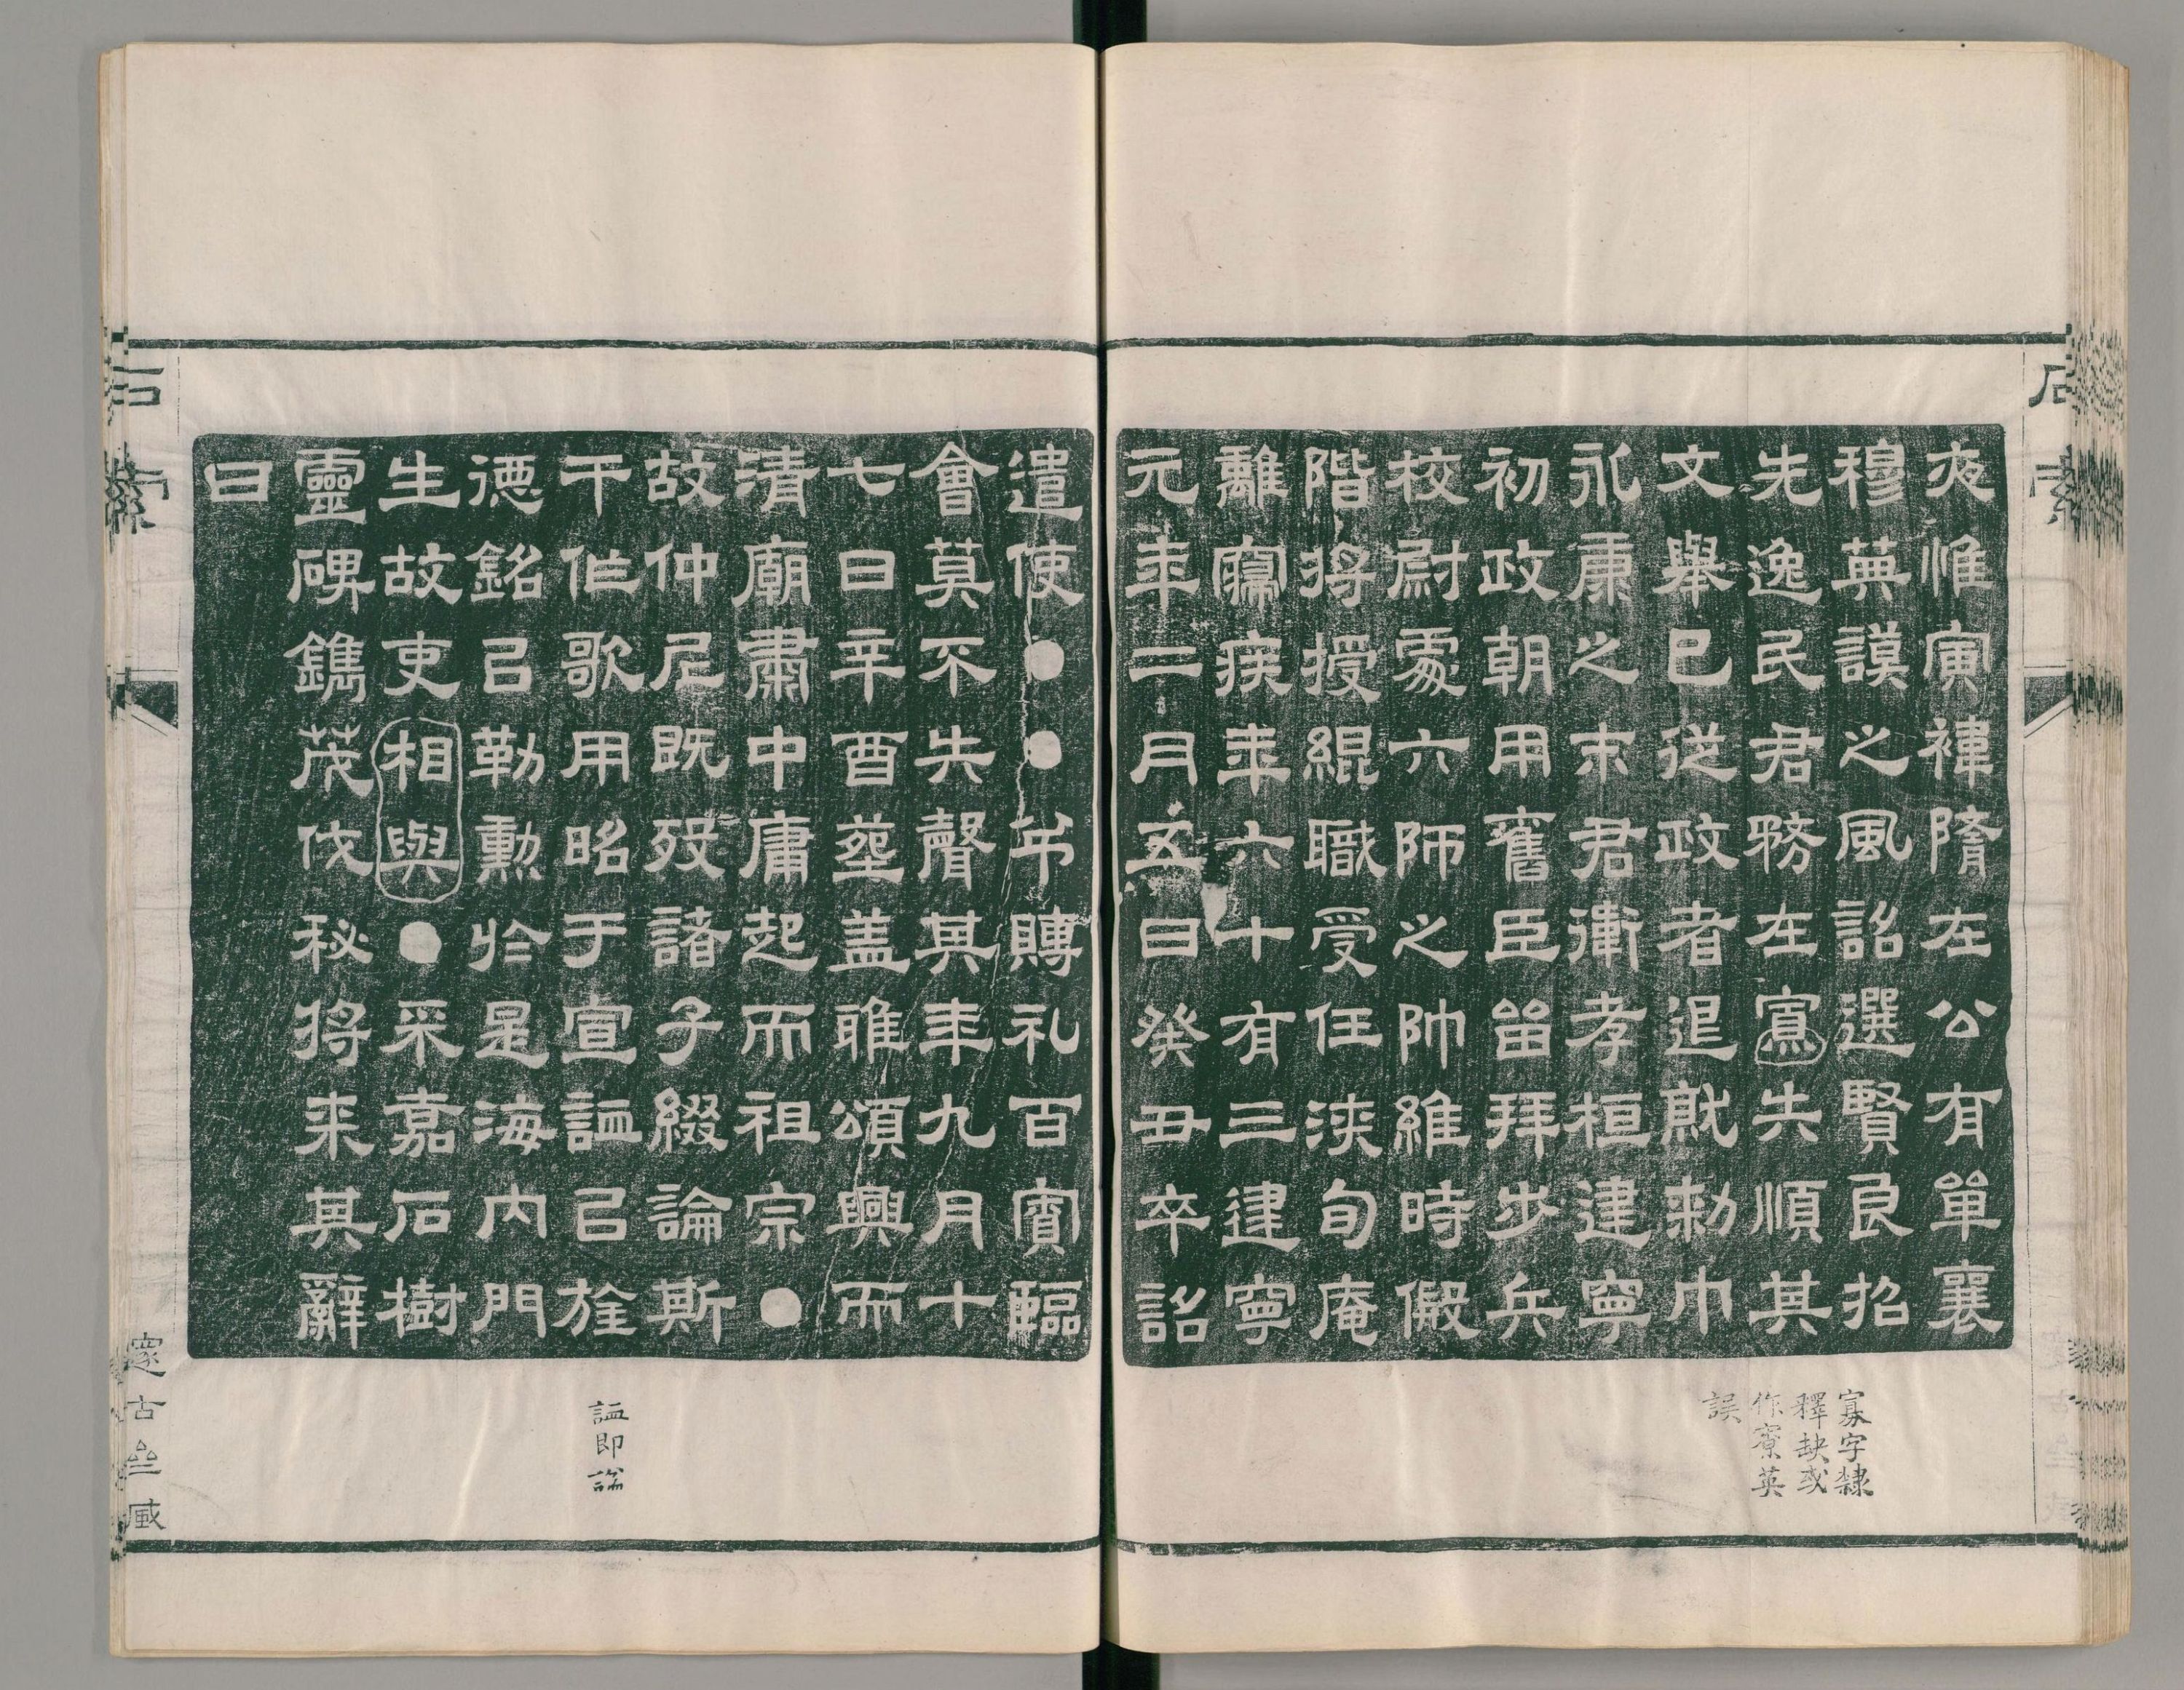 石索
夜惟寅禕隋在公有單襄
穆英謨之風詔選賢良招
先逸民君務在寡失順其
文舉已從政者退就勑巾
永康之末君衛孝桓建寧
初政朝用舊臣留拜步兵
校尉處六師之帥維時假
階將授緄職受任浹旬庵
離寢疾年六十有三建寧
元年二月五日癸丑卒詔
寡字隸
釋缺或
作寮英
誤
遣使●●弔賻礼百寮臨
會莫不失聲其年九月十
七日辛酉葬蓋雎頌興而
清廟肅中庸起而祖宗●
故仲尼既歿諸子綴論斯
干作歌用昭于宣謚以旌
德銘以勒勳於是海內門
生故吏相與●采嘉石樹
靈碑鐫茂伐秘將來其辭
曰
謚即諡
石索
邃古亝臧